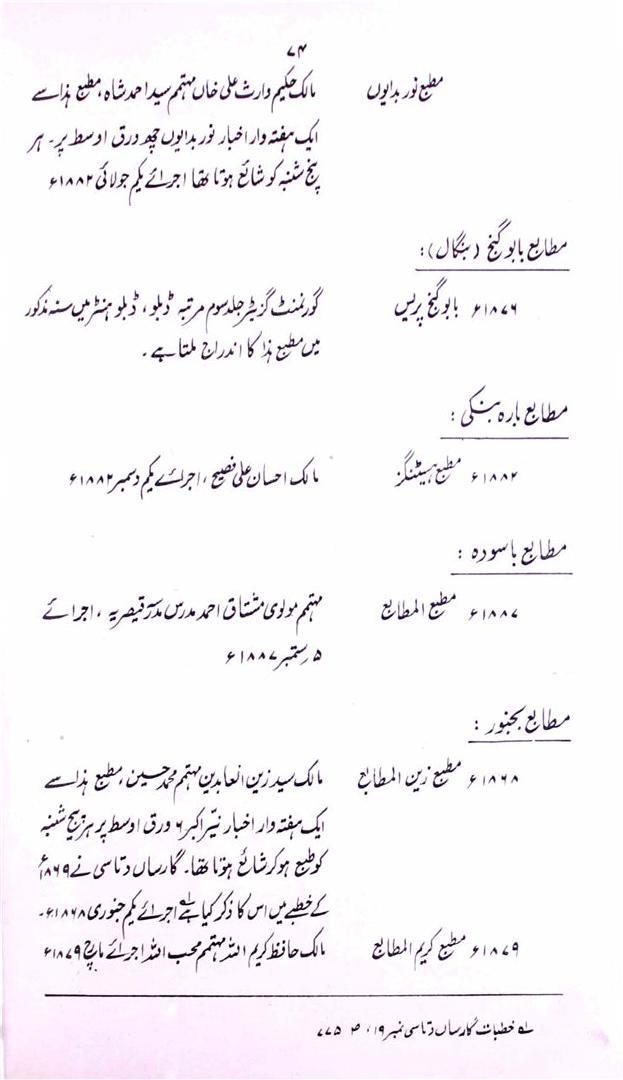 ۷۴
مطبع نور بدایوں مالک حکیم وارث علی خاں مہتمم سید احمد شاہ، مطبع ہذا سے
ایک ہفتہ وار اخبار نور بدایوں چھ ورق اوسط پر۔ ہر
پنج شنبہ کو شائع ہوتا تھا اجرائے یکم جولائی ۱۸۸۲ء
مطابع بابو گنج (بنگال):
۱۸۷۶ء بابو گنج پریس گورنمنٹ گزیٹر جلد سوم مرتبہ ڈبلو، ڈبلو ہنٹر میں سنہ مذکور
میں مطبع ہذا کا اندراج ملتا ہے۔
مطابع بارہ بنکی:
۱۸۸۲ء مطبع ہیٹنگز مالک احسان علی فصیح، اجرائے یکم دسمبر ۱۸۸۲ء
مطابع باسودہ:
۱۸۸۷ء مطبع المطابع مہتمم مولوی مشتاق احمد مدرس مدرسہ قیصریہ، اجرائے
۵ ستمبر ۱۸۸۷ء
مطابع بجنور:
۱۸۶۸ء مطبع زین المطابع مالک سید زین العابدین مہتمم محمد حسین، مطبع ہذا سے
ایک ہفتہ وار اخبار نیّر اکبر ۶ ورق اوسط پر ہر پنج شنبہ
کو طبع ہو کر شائع ہوتا تھا۔ گارساں دتاسی نے ۱۸۶۹ء
کے خطبے میں اس کا ذکر کیا ہے لہ اجرائے یکم جنوری ۱۸۶۸ء۔
۱۸۷۹ء مطبع کریم المطابع مالک حافظ کریم اللہ مہتمم محب اللہ اجرائے مارچ ۱۸۷۹ء
لہ خطبات گارساں دتاسی نمبر ۱۹، ص ۷۷۵